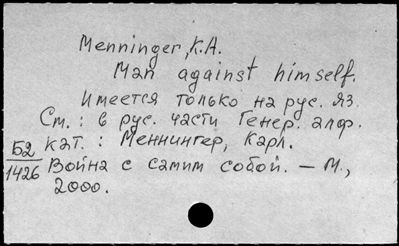 Menninger, K.A.
Man against himself.
Имеется только на рус. яз.
См.: в рус. части Генер. алф.
кат.: Меннингер, Карл.
Б2
1426
Война с самим собой. – М.,
2000.